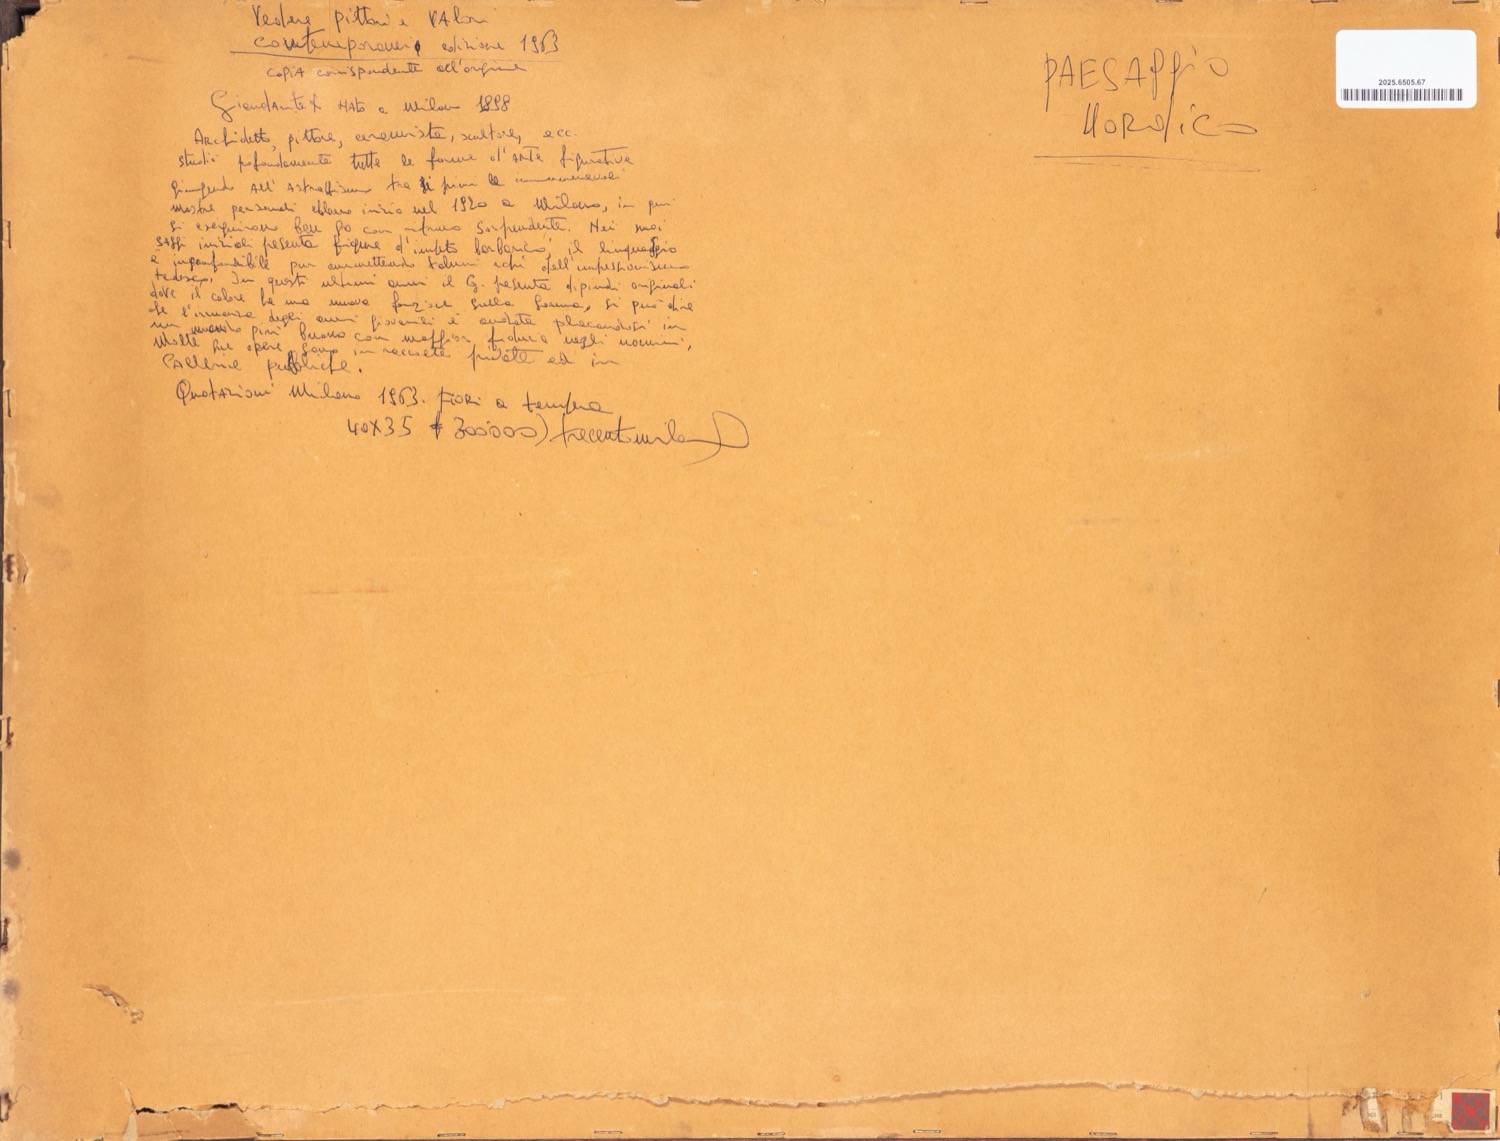 Vedere pittori e VAlori
contemporanei edizione 1963
copiA corrispondente all'origine
GiandanteX NAto a Milano 1898
Architetto, pittore, ceramista, scultore, ecc.
studiò profondamente tutte le forme d'ARTE figurativa
giungendo All'Astrattismo tra i primi le innumerevoli
mostre personali ebbero inizio nel 1920 a Milano, in poi
si eseguirono ben 90 con successo sorprendente. Nei suoi
SAggi iniziali presenta figure d'impeto barbarico, il linguaggio
è inconfondibile pur ammettendo taluni echi dell'impressionismo
tedesco. In questi ultimi anni il G. presenta dipinti originali
dove il colore ha una nuova funzione sulla forma, si può dire
che l'irruenza degli anni giovanili è andata placandosi in
un mondo più buono con maggior fiducia negli uomini,
Molte sue opere sono in raccolte private ed in
GAllerie pubbliche.
Quotazioni Milano 1963. FIORI a tempera
40X35 £ 300000) trecentomila
PAESAggiO
NORdico
2025.6505.67